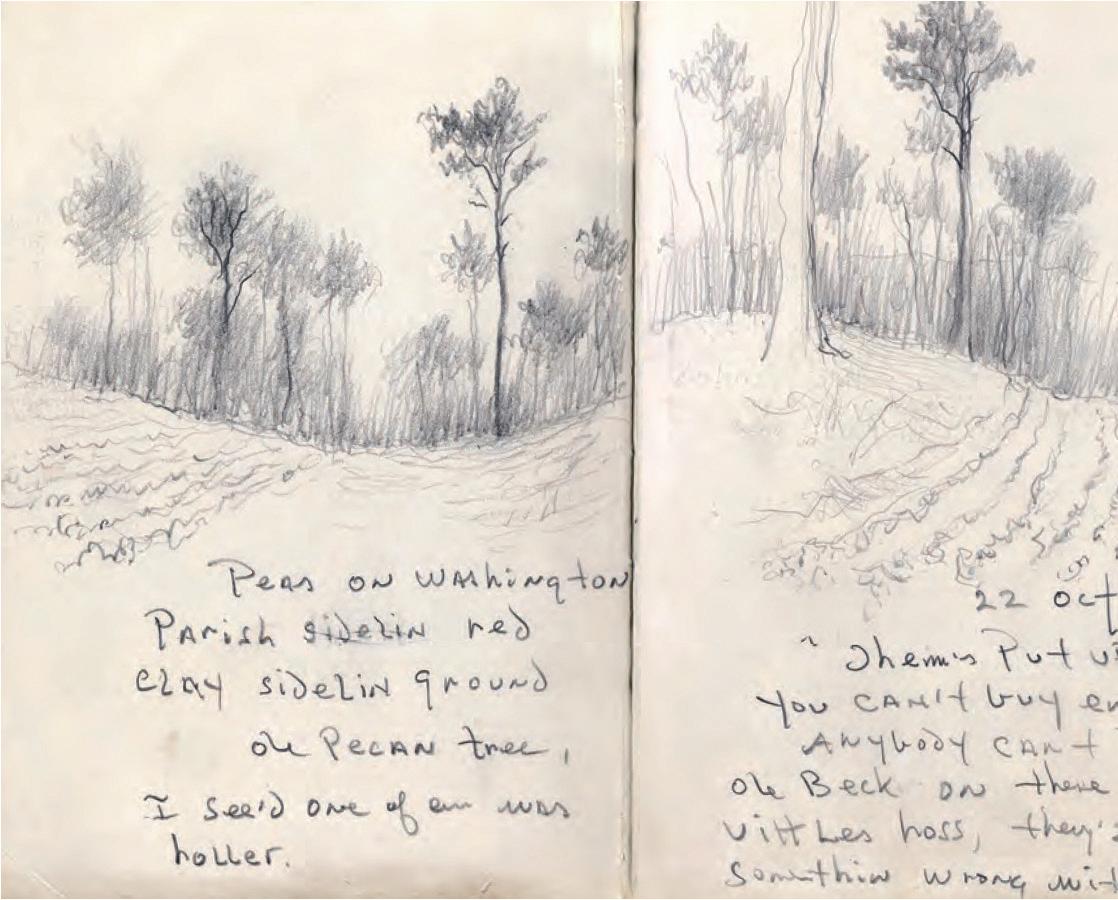 Peas on Washington
Parish sidelin red
clay sidelin ground
ole Pecan tree,
I see'd one of em was
holler.
22 Oct
"Them's Put up
You can't buy em
Anybody can't
ole Beck on there
vittles hoss, they's
somethin wrong wit